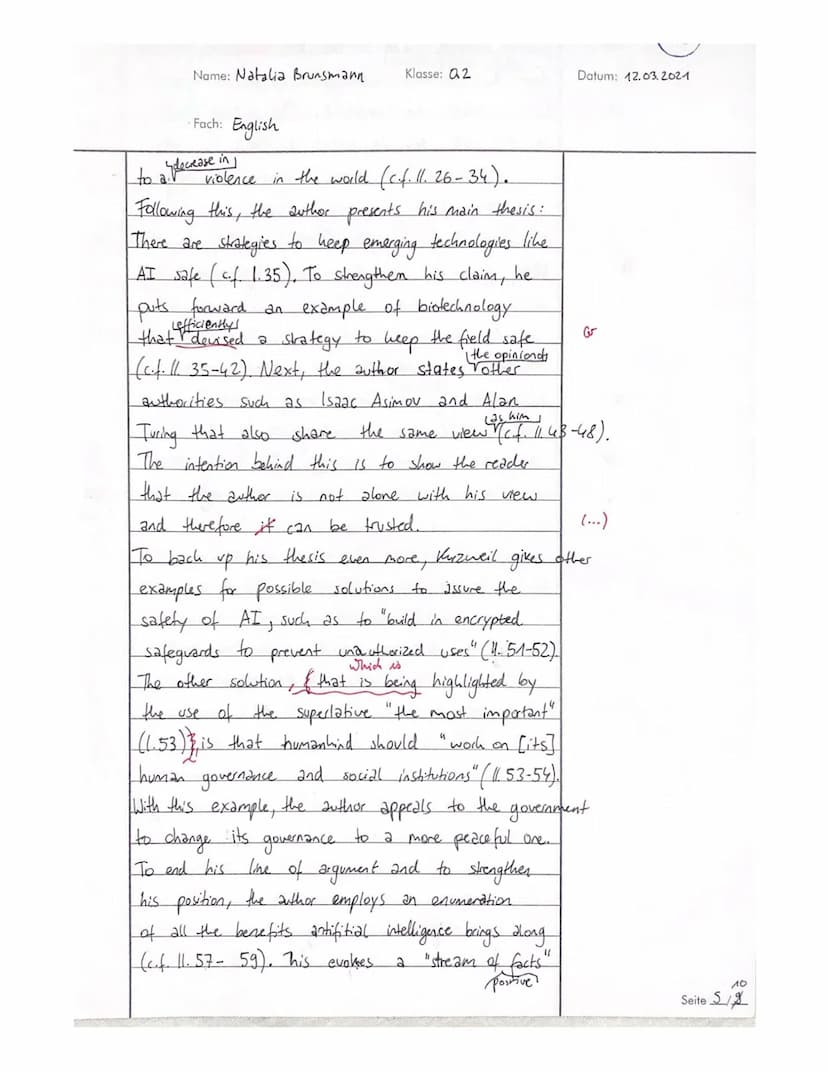 Name: Natalia Brunsmann Klasse: Q2 Datum: 12.03.2021
Fach: English
decrease in
to a violence in the world (c.f. ll. 26-34).
Following this, the author presents his main thesis:
There are strategies to keep emerging technologies like
AI safe (c.f. l.35). To strengthen his claim, he
puts forward an example of biotechnology
efficiently
that devised a strategy to keep the field safe Gr
(c.f. ll. 35-42). Next, the author states the opinion of other
authorities such as Isaac Asimov and Alan
as him
Turing that also share the same view (c.f. ll. 43-48).
The intention behind this is to show the reader
that the author is not alone with his view
and therefore it can be trusted. (...)
To back up his thesis even more, Kurzweil gives other
examples for possible solutions to assure the
safety of AI, such as to "build in encrypted
safeguards to prevent unauthorized uses" (ll. 51-52).
which is
The other solution, that is being highlighted by
the use of the superlative "the most important"
(l.53), is that humankind should "work on [its]
human governance and social institutions" (ll. 53-54).
With this example, the author appeals to the government
to change its governance to a more peaceful one.
To end his line of argument and to strengthen
his position, the author employs an enumeration
of all the benefits antifitial intelligence brings along
(c.f. ll. 57- 59). This evokes a "stream of facts"
positive
10
Seite 5/